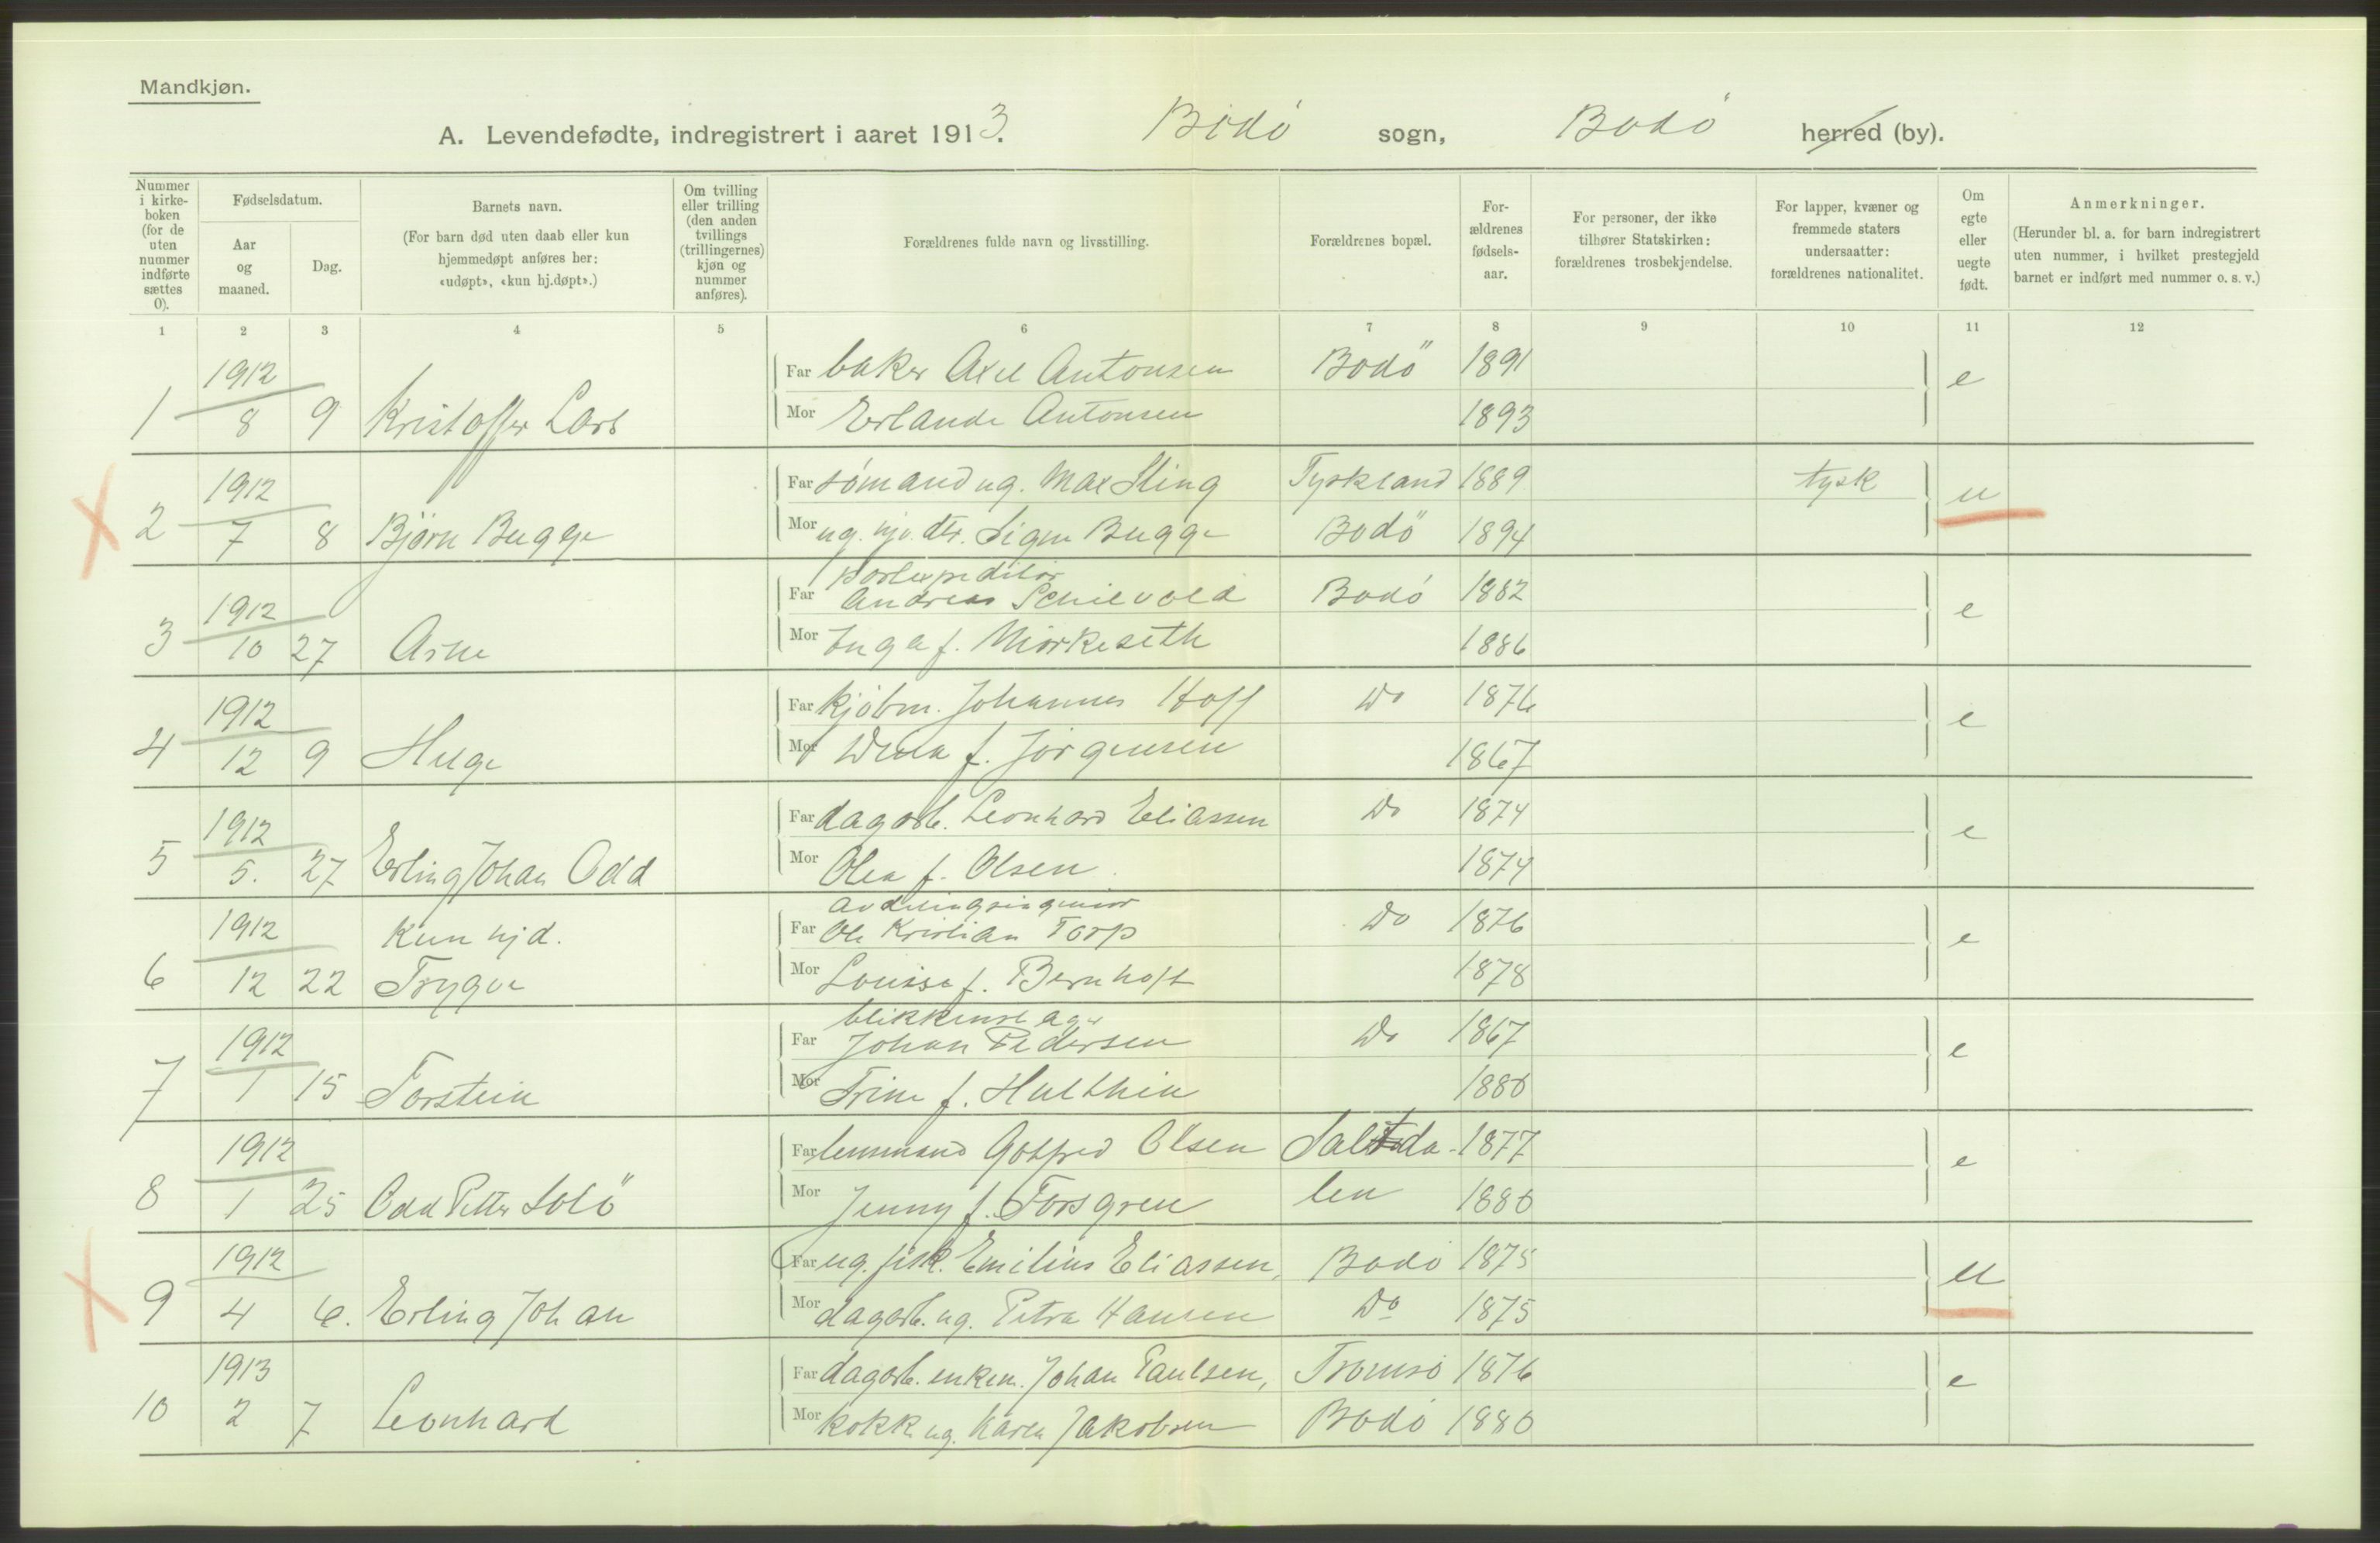 Mandkjøn.
A. Levendefødte, indregistrert i aaret 1913. Bodö sogn, Bodö herred (by).
Nummer i kirke-boken (for de uten nummer indførte sættes 0).
Fødselsdatum.
Aar og maaned.
Dag.
Barnets navn.
(For barn død uten daab eller kun hjemmedøpt anføres her: «udøpt», «kun hj.døpt».)
Om tvilling eller trilling (den anden tvillings (trillingernes) kjøn og nummer anføres).
Forældrenes fulde navn og livsstilling.
Forældrenes bopæl.
For-ældrenes fødsels-aar.
For personer, der ikke tilhører Statskirken: forældrenes trosbekjendelse.
For lapper, kvæner og fremmede staters undersaatter: forældrenes nationalitet.
Om egte eller uegte født.
Anmerkninger.
(Herunder bl. a. for barn indregistrert uten nummer, i hvilket prestegjeld barnet er indført med nummer o. s. v.)
1 2 3 4 5 6 7 8 9 10 11 12
1 1912 8 9 Kristoffer Lars Far baker Axel Antonsen Bodö 1891 e
Mor Erlande Antonsen 1893
2 1912 7 8 Björn Bugge Far sömand ug. Max Sting Tyskland 1889 tysk u
Mor ug. hjv. dtr. Signe Bugge Bodö 1894
3 1912 10 27 Arne Far postexpeditör Andreas Schievold Bodö 1882 e
Mor Inga f. Mörkeseth 1886
4 1912 12 9 Helge Far kjöbm. Johannes Hoff Do 1876 e
Mor Dina f. Jörgensen 1867
5 1912 5. 27 Erling Johan Odd Far dagarb. Leonhard Eliassen Do 1874 e
Mor Olea f. Olsen 1874
6 1912 12 22 Kun hjd. Trygve Far avdelingsingeniör Ole Kristian Torp Do 1876 e
Mor Louise f. Bernhoft 1878
7 1912 1 15 Torstein Far blikkenslager Johan Pedersen Do 1867 e
Mor Trine f. Hulthin 1880
8 1912 1 25 Odd Petter Solö Far lensmand Gotfred Olsen Saltda- 1877 e
Mor Jenny f. Forsgren len 1880
9 1912 4 6. Erling Johan Far ug. fisk. Emilius Eliassen, Bodö 1875 u
Mor dagarb. ug. Petra Hansen Do 1875
10 1913 2 7 Leonhard Far dagarb. enkem. Johan Paulsen, Tromsö 1876 e
Mor kokke ug. Karen Jakobsen Bodö 1880